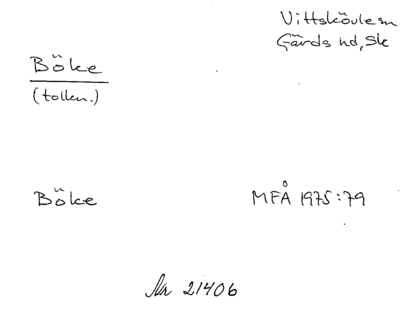 Vittskövle sn
Gärds hd, Sk
Böke
(tolkn.)
Böke
MFÅ 1975:79
Nr 21406